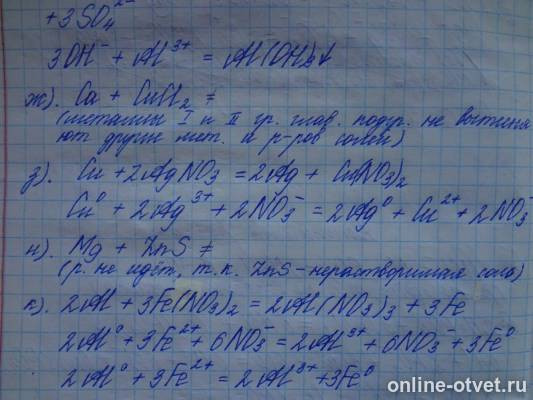 + 3SO₄²⁻
3OH⁻ + Al³⁺ = Al(OH)₃↓
ж). Ca + CuCl₂ ≠
(металлы I и II гр. глав. подгр. не вытесня
ют другие мет. из р-ров солей)
з). Cu + 2AgNO₃ = 2Ag + Cu(NO₃)₂
Cu⁰ + 2Ag³⁺ + 2NO₃⁻ = 2Ag⁰ + Cu²⁺ + 2NO₃⁻
и). Mg + ZnS ≠
(р. не идёт, т.к. ZnS - нерастворимая соль)
к). 2Al + 3Fe(NO₃)₂ = 2Al(NO₃)₃ + 3Fe
2Al⁰ + 3Fe²⁺ + 6NO₃⁻ = 2Al³⁺ + 6NO₃⁻ + 3Fe⁰
2Al⁰ + 3Fe²⁺ = 2Al³⁺ + 3Fe⁰
online-otvet.ru